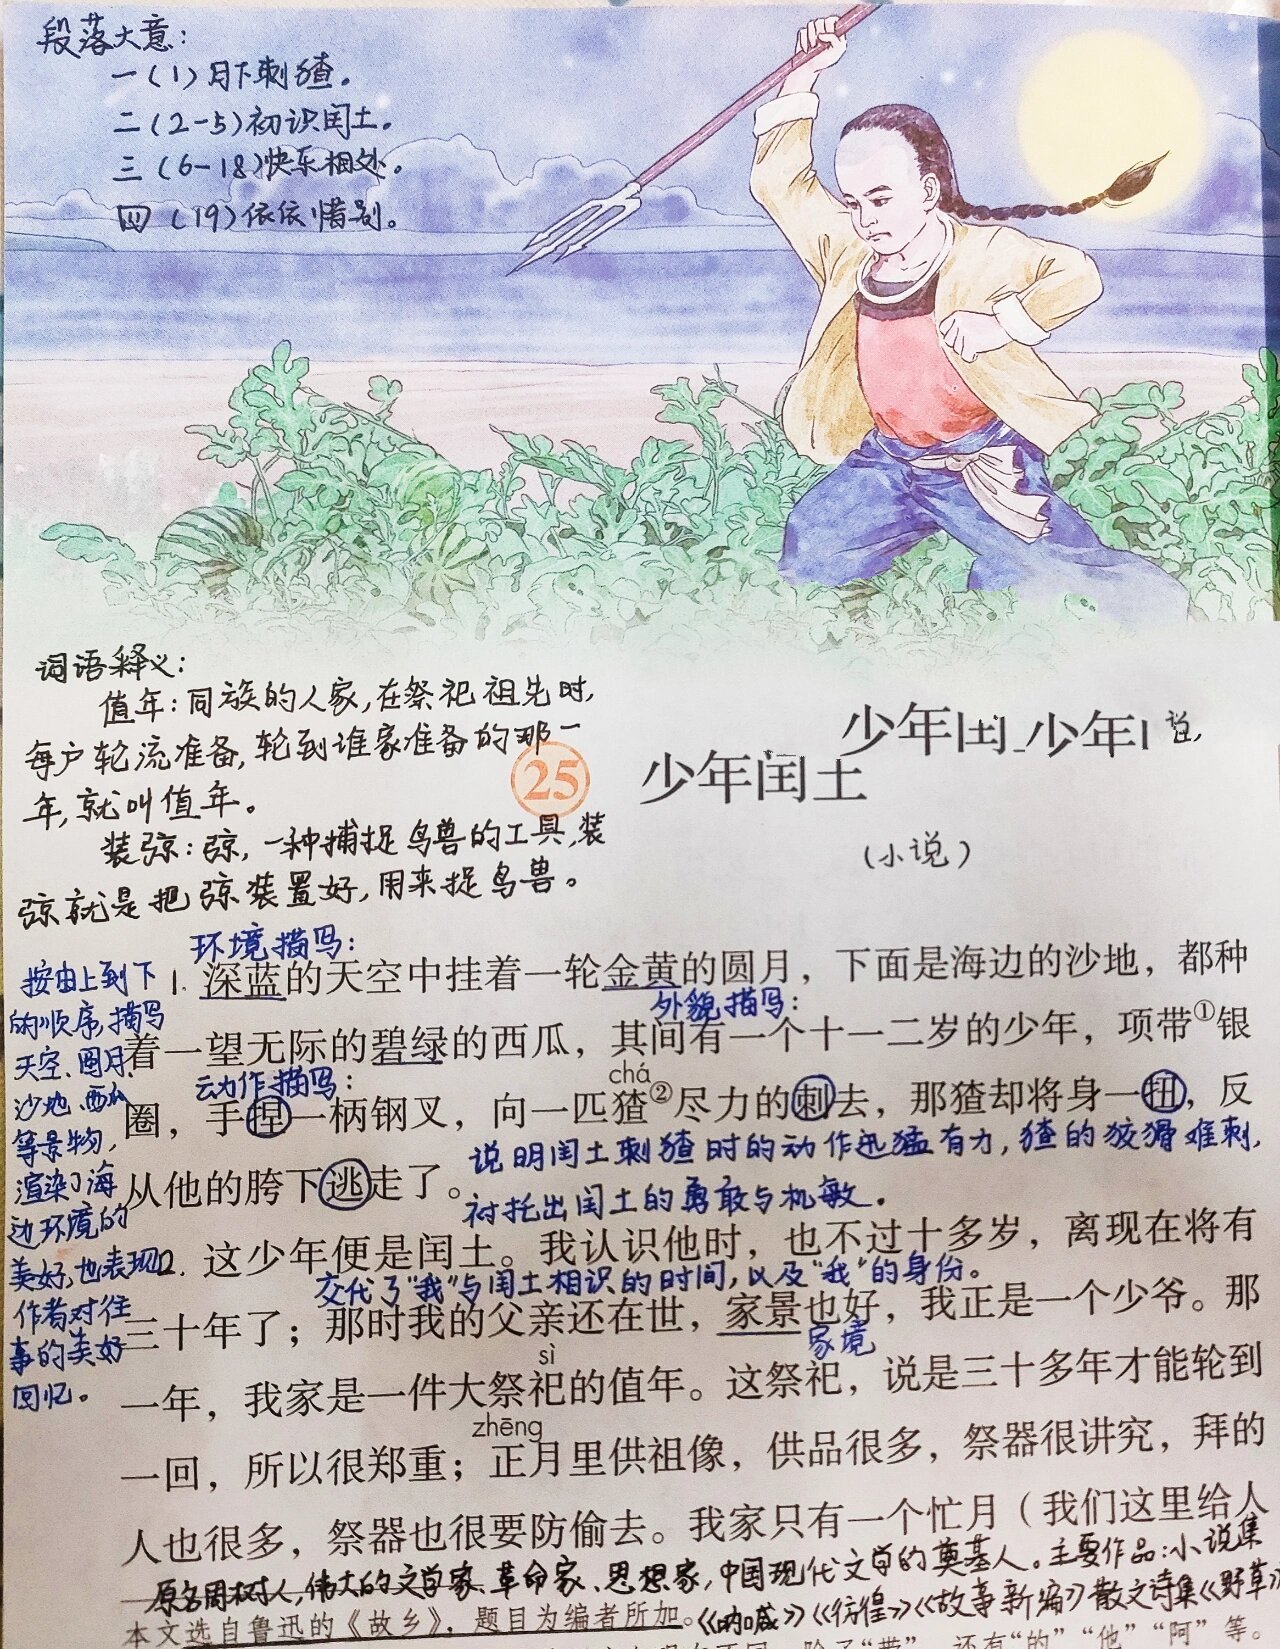 段落大意：
一(1)月下刺猹。
二(2-5)初识闰土。
三(6-18)快乐相处。
四(19)依依惜别。
词语释义：
值年：同族的人家,在祭祀祖先时,
每户轮流准备,轮到谁家准备的那一
年,就叫值年。
装弶：弶,一种捕捉鸟兽的工具,装
弶就是把弶装置好,用来捉鸟兽。
25
少年闰土
少年
少年
(小说)
环境描写：
1. 深蓝的天空中挂着一轮金黄的圆月，下面是海边的沙地，都种
外貌描写：
着一望无际的碧绿的西瓜，其间有一个十一二岁的少年，项带①银
动作描写：
chá
圈，手捏一柄钢叉，向一匹猹②尽力的刺去，那猹却将身一扭，反
说明闰土刺猹时的动作迅猛有力，猹的狡猾难刺,
从他的胯下逃走了。
衬托出闰土的勇敢与机敏。
按由上到下
的顺序,描写
天空、圆月、
沙地、西瓜
等景物,
渲染了海
边环境的
美好,也表现
作者对往
事的美好
回忆。
2. 这少年便是闰土。我认识他时，也不过十多岁，离现在将有
交代了"我"与闰土相识的时间,以及"我"的身份。
三十年了；那时我的父亲还在世，家景也好，我正是一个少爷。那
家境
sì
一年，我家是一件大祭祀的值年。这祭祀，说是三十多年才能轮到
zhēng
一回，所以很郑重；正月里供祖像，供品很多，祭器很讲究，拜的
人也很多，祭器也很要防偷去。我家只有一个忙月（我们这里给人
原名周树人,伟大的文学家、革命家、思想家,中国现代文学的奠基人。主要作品:小说集
本文选自鲁迅的《故乡》，题目为编者所加。《呐喊》《彷徨》《故事新编》散文诗集《野草》
"的""他""阿"等。